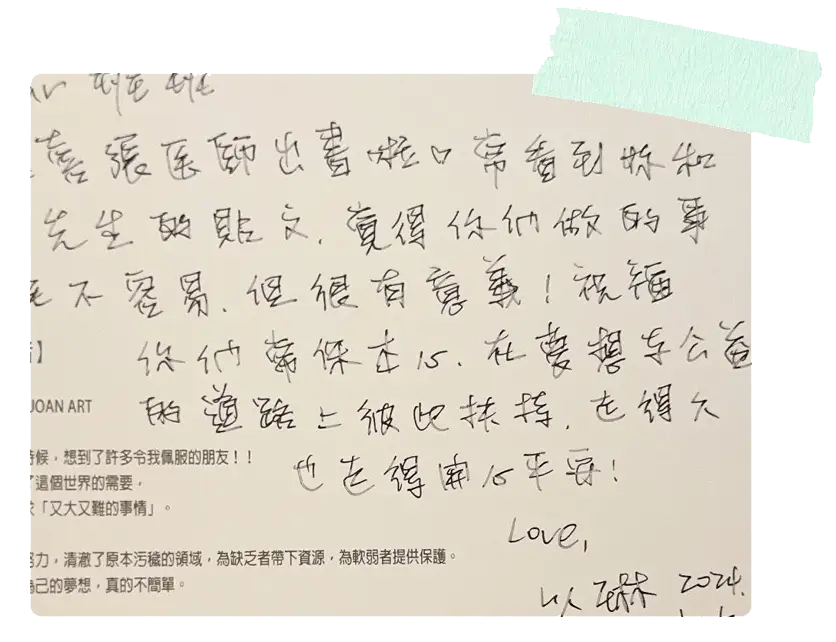 喜張医師出書啦口常看到妳和
先生的貼文，覺得你們做的事
不容易，但很有意義！祝福
你們常保赤心，在夢想与公益
的道路上彼此扶持，走得久
也走得開心平安！
Love,
以琳 2024.
】
JOAN ART
時候，想到了許多令我佩服的朋友！！
了這個世界的需要，
求「又大又難的事情」。
努力，清澈了原本汚穢的領域，為缺乏者帶下資源，為軟弱者提供保護。
為己的夢想，真的不簡單。